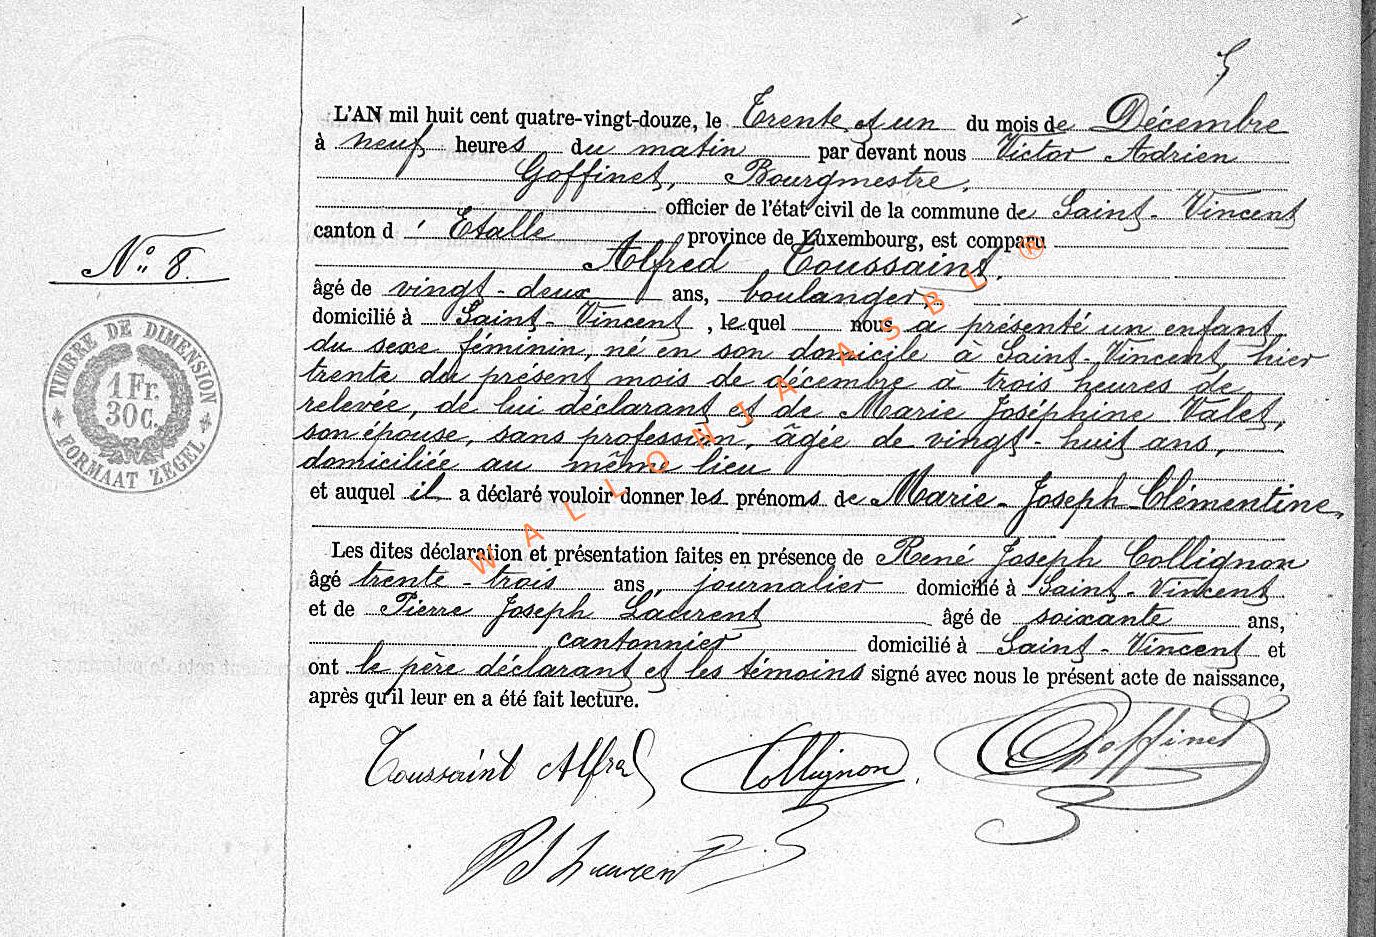 5
L'AN mil huit cent quatre-vingt-douze, le Trente et un du mois de Décembre
à neuf heures du matin par devant nous Victor Adrien
Goffinet, Bourgmestre,
officier de l'état civil de la commune de Saint-Vincent
canton d'Etalle province de Luxembourg, est comparu
Alfred Toussaint,
âgé de vingt-deux ans, boulanger,
domicilié à Saint-Vincent, lequel nous a présenté un enfant
du sexe féminin, né en son domicile à Saint-Vincent, hier
trente du présent mois de décembre à trois heures de
relevée, de lui déclarant et de Marie Joséphine Valet,
son épouse, sans profession, âgée de vingt-huit ans,
domiciliée au même lieu
et auquel il a déclaré vouloir donner les prénoms de Marie-Joseph-Clémentine,
Les dites déclaration et présentation faites en présence de René Joseph Collignon
âgé trente-trois ans, journalier domicilié à Saint-Vincent
et de Pierre Joseph Laurent âgé de soixante ans,
cantonnier domicilié à Saint-Vincent et
ont le père déclarant et les témoins signé avec nous le présent acte de naissance,
après qu'il leur en a été fait lecture.
Toussaint Alfred Collignon Goffinet
P J Laurent
N° 8.
TIMBRE DE DIMENSION
1 Fr.
30 C.
FORMAAT ZEGEL
WALLONIA ASBL ®